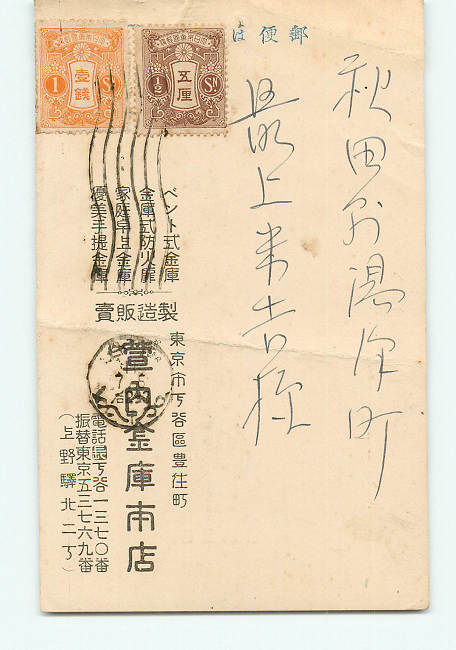 郵便は
秋田県湯沢町
最上来吉様
大日本帝國郵便
壹錢
1 Sn
大日本帝國郵便
五厘
1/2 Sn
ベント式金庫
金庫式防火扉
家庭卓上金庫
優美手提金庫
製造販賣
東京市下谷區豊住町
萱内金庫本店
電話下谷一三七〇番
振替東京五三七六九番
(上野驛北二丁)